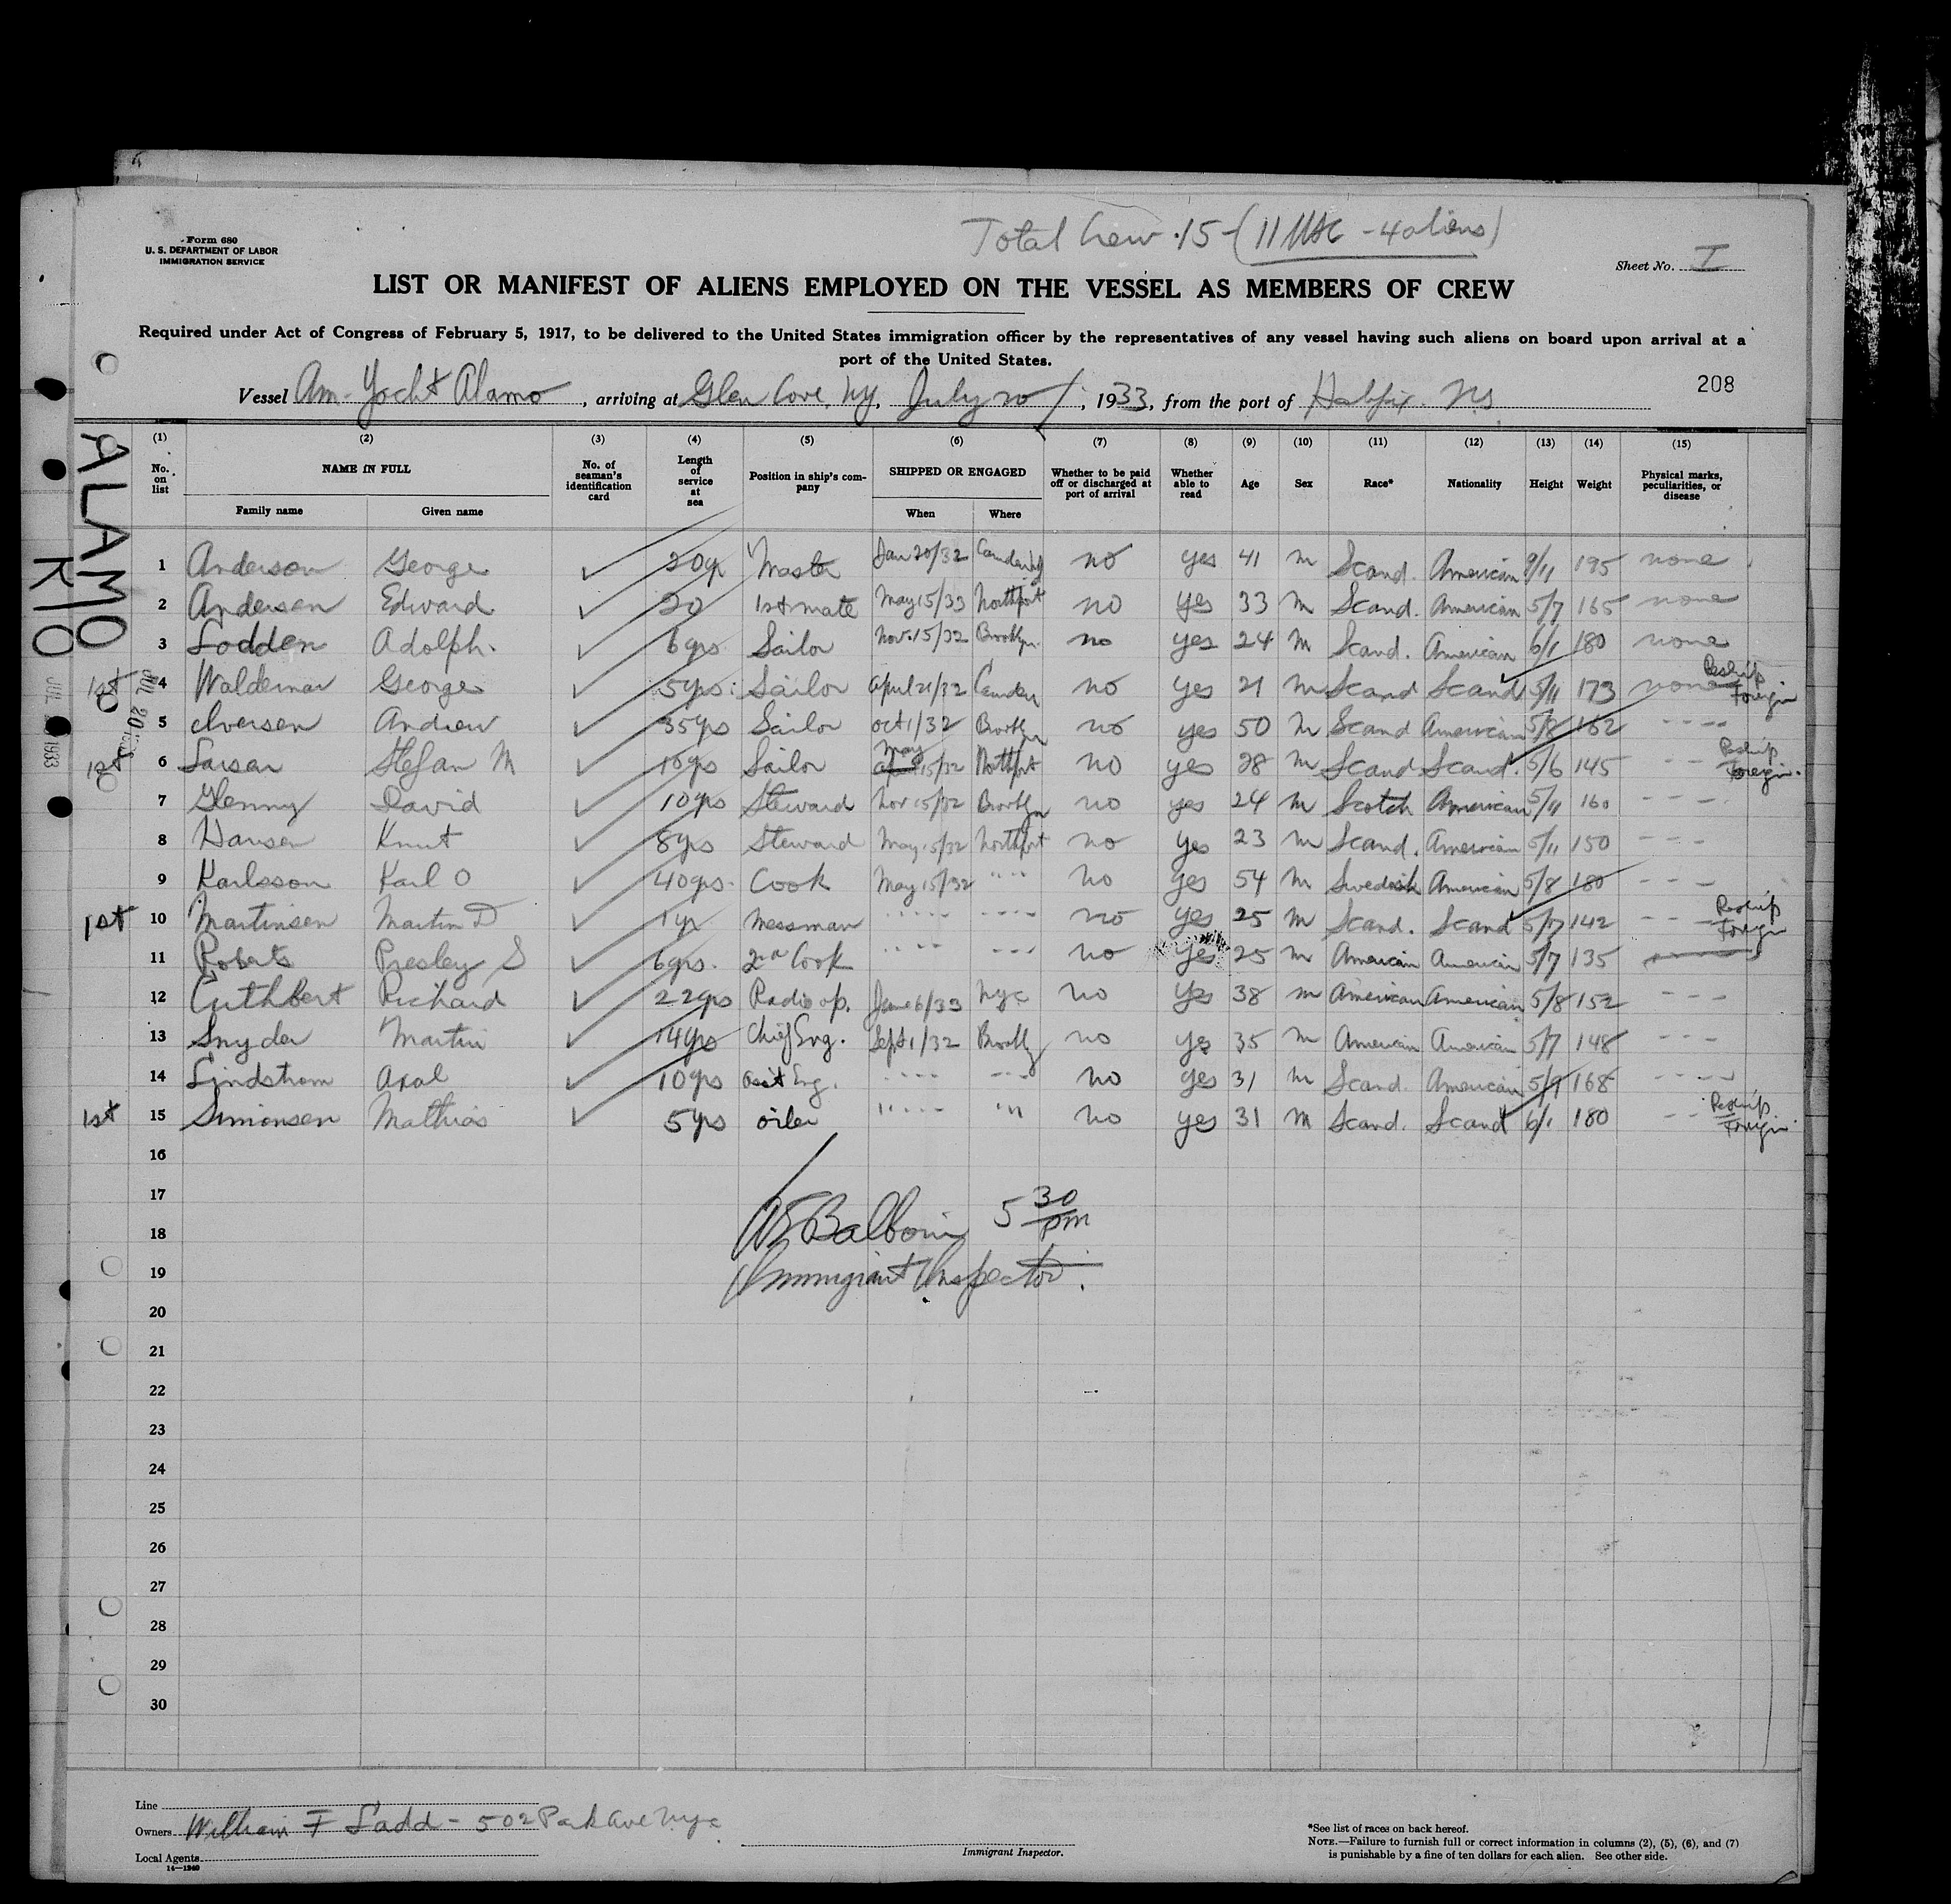 Total Crew 15 - (11 USC - 4 aliens)
Form 680
U. S. DEPARTMENT OF LABOR
IMMIGRATION SERVICE
Sheet No. I
LIST OR MANIFEST OF ALIENS EMPLOYED ON THE VESSEL AS MEMBERS OF CREW
Required under Act of Congress of February 5, 1917, to be delivered to the United States immigration officer by the representatives of any vessel having such aliens on board upon arrival at a
port of the United States.
208
Vessel Am. Yacht Alamo, arriving at Glen Cove, NY, July 20, 1933, from the port of Halifax NS
ALAMO
RIO
(1) (2) (3) (4) (5) (6) (7) (8) (9) (10) (11) (12) (13) (14) (15)
No. on list NAME IN FULL No. of seaman's identification card Length of service at sea Position in ship's company SHIPPED OR ENGAGED Whether to be paid off or discharged at port of arrival Whether able to read Age Sex Race* Nationality Height Weight Physical marks, peculiarities, or disease
Family name Given name When Where
1 Anderson George ✓ 20yr Master Jan 20/32 Camden NJ no yes 41 M Scand. American 9/11 195 none
2 Andersen Edward ✓ 20 1st mate May 15/33 Northport no yes 33 M Scand. American 5/7 165 none
3 Lodden Adolph. ✓ 6yrs Sailor Nov. 15/32 Brooklyn no yes 24 M Scand. American 6/1 180 none
1st 4 Waldemar George ✓ 5yrs Sailor April 21/32 Camden no yes 21 M Scand Scand 5/11 173 none Reship Foreign
5 Iversen Andrew ✓ 35yrs Sailor Oct 1/32 Brooklyn no yes 50 M Scand American 5/8 162 - - - -
1st 6 Larsen Stefan M ✓ 10yrs Sailor May 15/32 Northport no yes 28 M Scand Scand. 5/6 145 - - Reship Foreign.
7 Glenny David ✓ 10yrs Steward Nov 15/32 Brooklyn no yes 24 M Scotch American 5/11 160 - - -
8 Hansen Knut ✓ 8yrs Steward May 15/32 Northport no yes 23 M Scand. American 5/11 150 - -
9 Karlsson Karl O ✓ 40yrs. Cook May 15/32 " " no yes 54 M Swedish American 5/8 180 - - -
1st 10 Martinsen Martin D ✓ 1yr Messman " " " " no yes 25 M Scand. Scand 5/7 142 - - Reship Foreign
11 Roberts Presley S ✓ 6yrs. 2nd Cook " " " " no yes 25 M American American 5/7 135
12 Cuthbert Richard ✓ 22yrs Radio op. June 6/33 NYC no yes 38 M American American 5/8 152 - - -
13 Snyder Martin ✓ 14yrs Chief Eng. Sept 1/32 Brookly no yes 35 M American American 5/7 148 - - -
14 Lindstrom Axal ✓ 10yrs Asst Eng. " " " " no yes 31 M Scand. American 5/9 168 - - - -
1st 15 Simonsen Mathias ✓ 5yrs oiler " " " " no yes 31 M Scand. Scand 6/1 180 - - Reship Foreign.
16
17
5 30 pm
18
19 Immigrant Inspector.
20
21
22
23
24
25
26
27
28
29
30
Line
Owners William F Ladd - 502 Park Ave NYC
Local Agents
14—1240
Immigrant Inspector.
*See list of races on back hereof.
NOTE.—Failure to furnish full or correct information in columns (2), (5), (6), and (7)
is punishable by a fine of ten dollars for each alien. See other side.